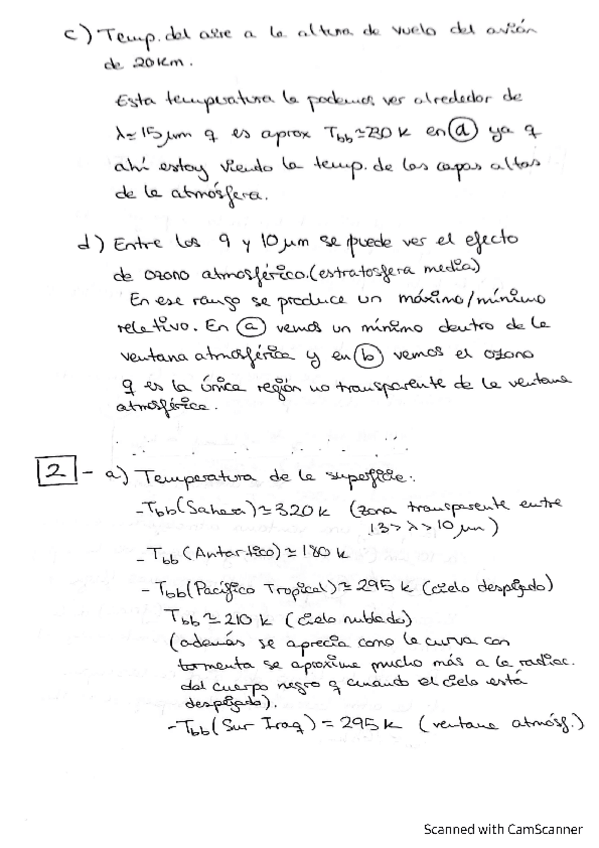 c) Temp. del aire a la altura de vuelo del avión
de 20km.
Esta temperatura la podemos ver alrededor de
λ≃15μm q es aprox Tbb≃230k en (a) ya q
ahí estoy viendo la temp. de las capas altas
de la atmósfera.
d) Entre los 9 y 10μm se puede ver el efecto
de ozono atmosférico.(estratosfera media)
En ese rango se produce un máximo/mínimo
relativo. En (a) vemos un mínimo dentro de la
ventana atmosférica y en (b) vemos el ozono
q es la única región no transparente de la ventana
atmosférica.
2 - a) Temperatura de la superficie:
- Tbb (Sahara) ≃ 320k (zona transparente entre
13>λ>10μm)
- Tbb (Antártico) ≃ 180k
- Tbb (Pacífico Tropical) ≃ 295k (cielo despejado)
Tbb ≃ 210k (cielo nublado)
(además se aprecia como la curva con
tormenta se aproxima mucho más a la radiac.
del cuerpo negro q cuando el cielo está
despejado).
- Tbb (Sur Iraq) = 295k (ventana atmósf.)
Scanned with CamScanner